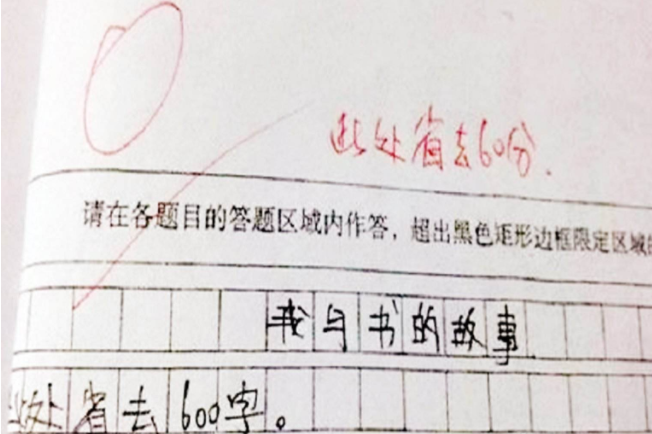 此处省去60分.
请在各题目的答题区域内作答，超出黑色矩形边框限定区域
我与书的故事
此处省去600字。